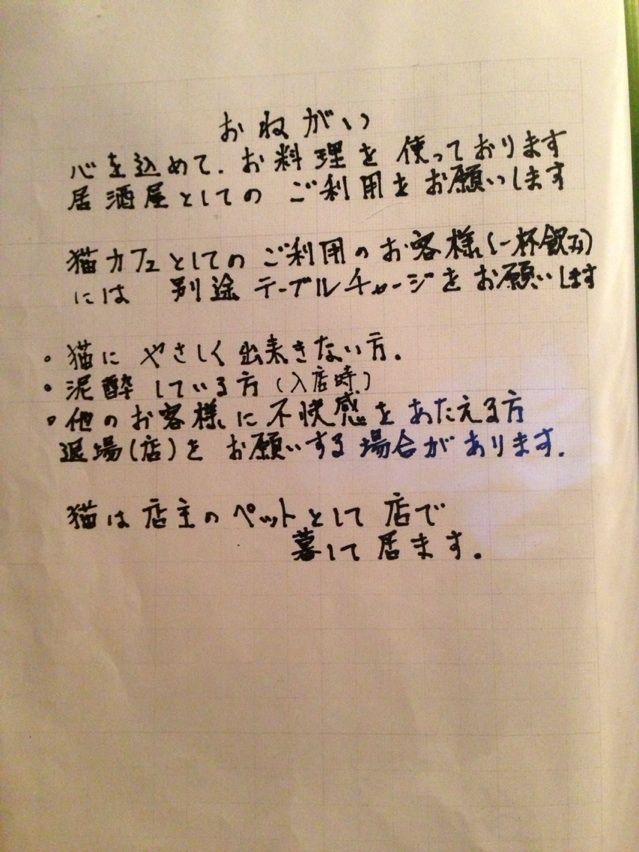 おねがい
心を込めて、お料理を使っております
居酒屋としてのご利用をお願いします
猫カフェとしてのご利用のお客様(一杯飲み)
には 別途テーブルチャージをお願いします
・猫にやさしく出来きない方.
・泥酔している方(入店時)
・他のお客様に不快感をあたえる方
退場(店)をお願いする場合があります.
猫は店主のペットとして店で
暮して居ます.